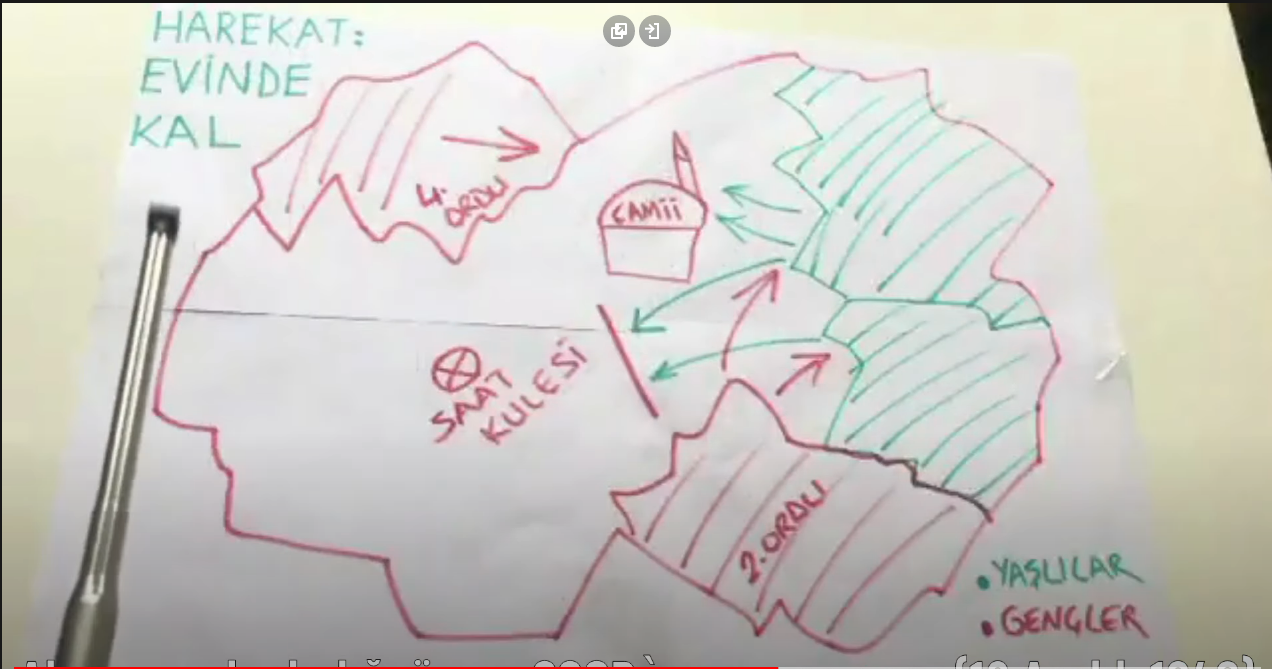 HAREKAT:
EVİNDE
KAL
4. ORDU
CAMİİ
SAAT
KULESİ
2. ORDU
• YAŞLILAR
• GENÇLER